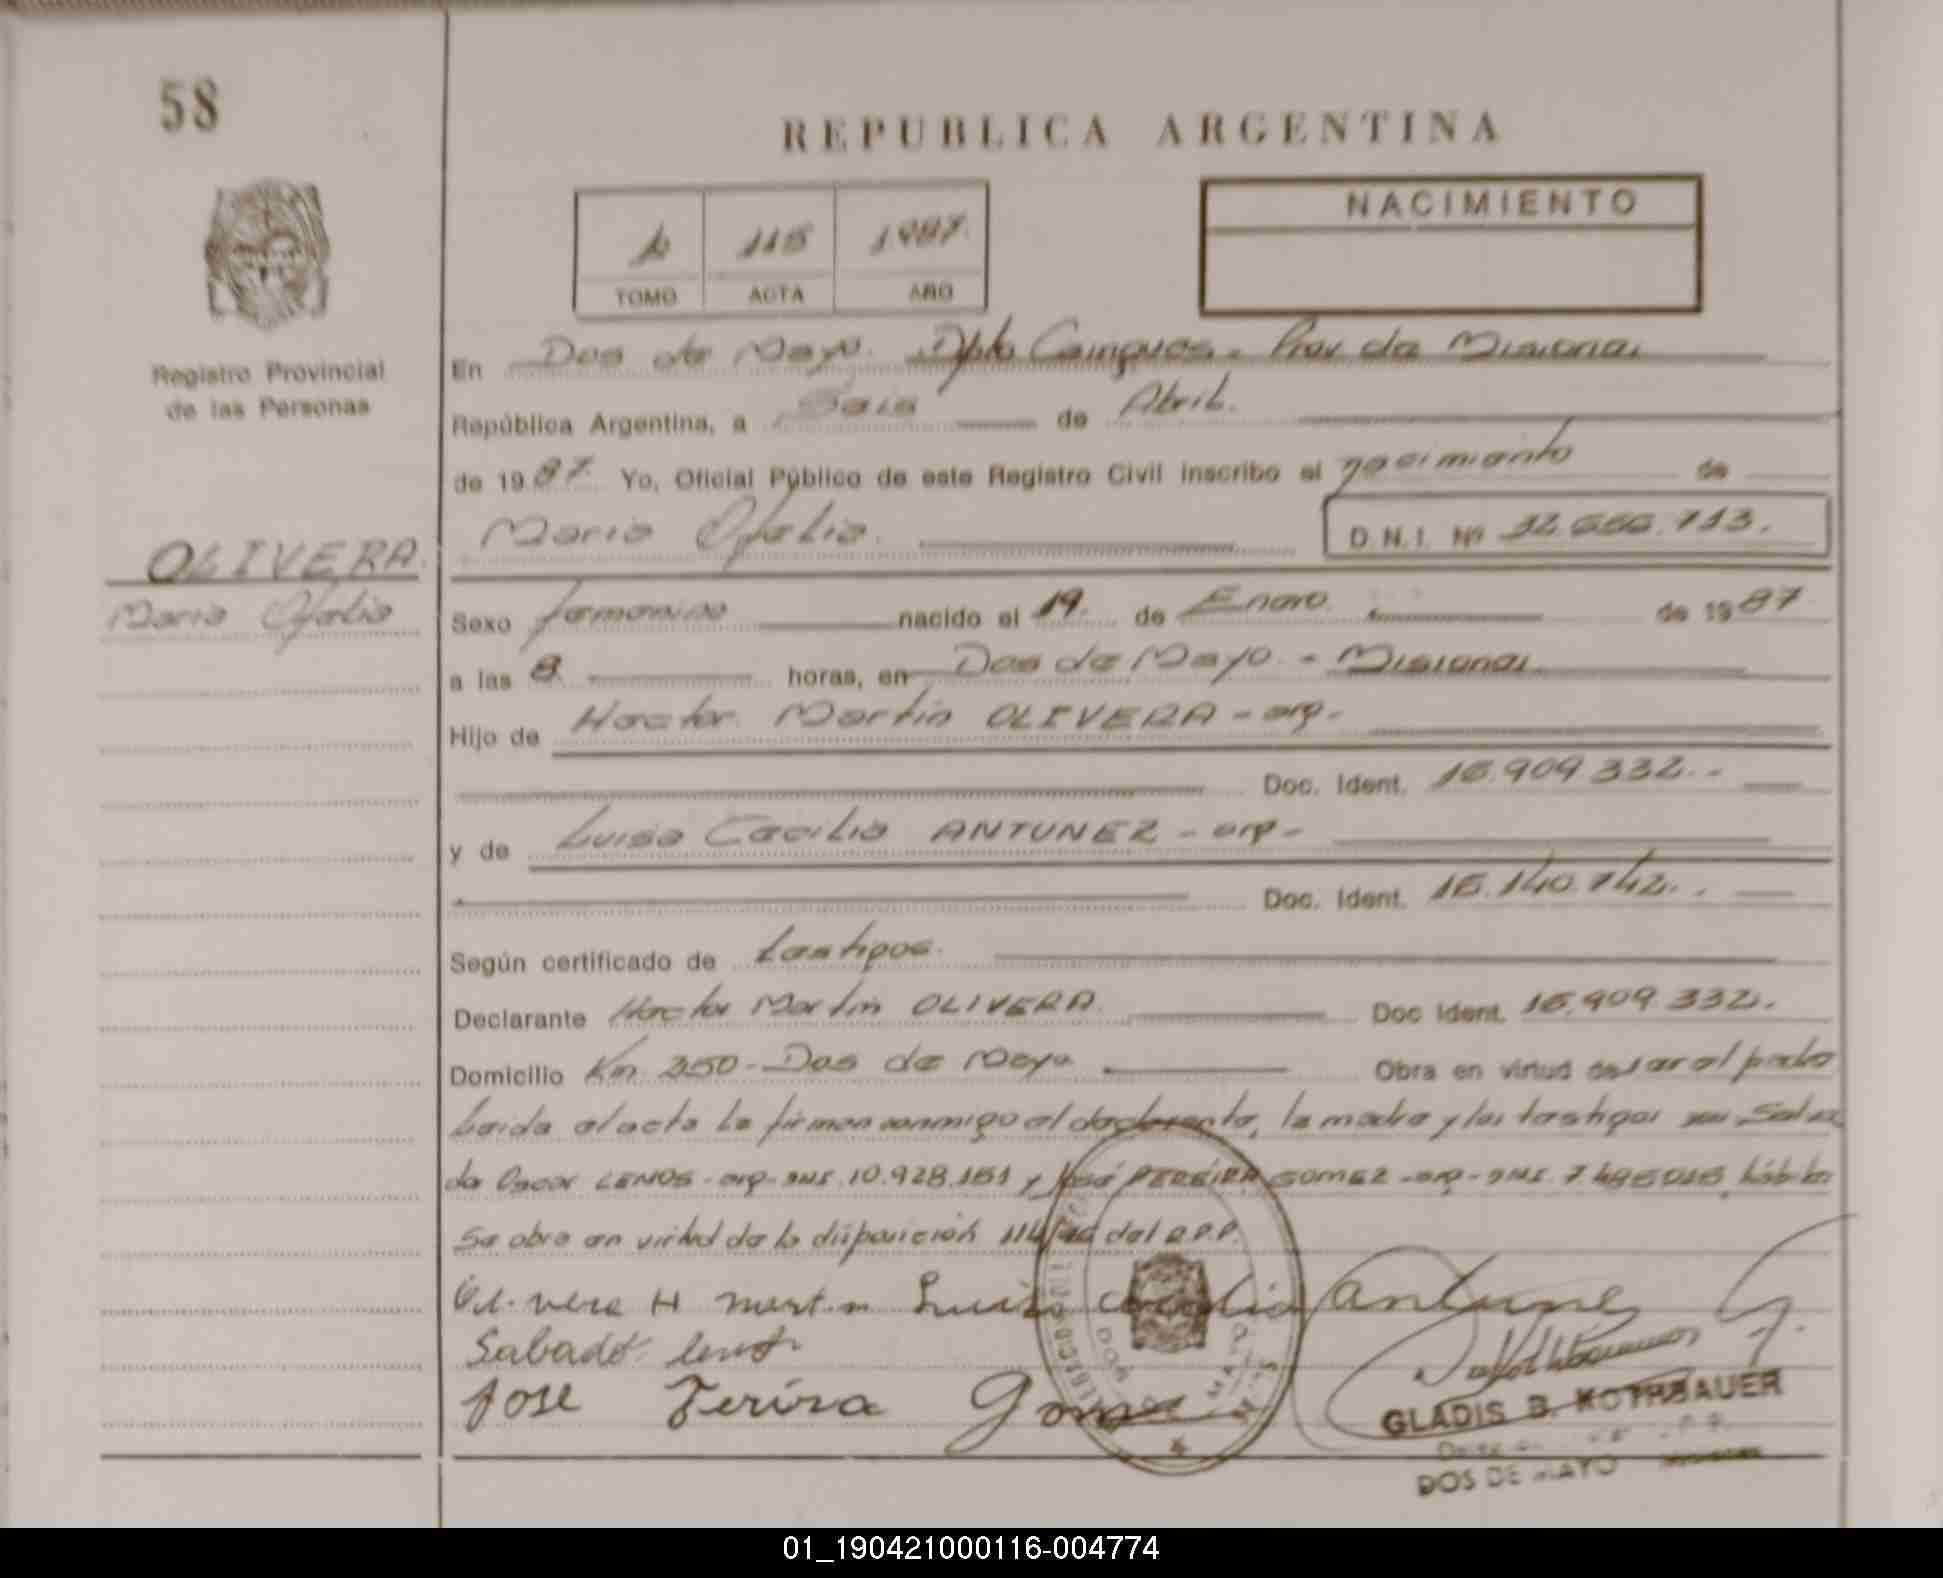 58
REPUBLICA ARGENTINA
NACIMIENTO
115 1987
TOMO ACTA AÑO
Registro Provincial
de las Personas
En Dos de Mayo. Dpto Cainguas - Prov de Misiones
República Argentina, a Seis de Abril.
de 1987 Yo, Oficial Público de este Registro Civil inscribo el nacimiento de
Maria Ofelia. D.N.I. Nº
OLIVERA.
Maria Ofelia
Sexo femenino nacido el 19 de Enero de 1987
a las 8 horas, en Dos de Mayo. - Misiones.
Hijo de Hector Martin OLIVERA - arg -
Doc. Ident. 16.909.332.-
y de Luisa Cecilia ANTUNEZ - arg -
Doc. Ident.
Según certificado de testigos.
Declarante Hector Martin OLIVERA. Doc Ident. 16.909.332.
Domicilio Km 350 - Dos de Mayo Obra en virtud de ser el padre
Leida el acta la firman conmigo el declarante, la madre y los testigos
Oscar LEMOS - arg - DNI. 10.928.151 y José PEREIRA GOMEZ - arg - DNI.
Se obra en virtud de la disposición del R.P.P.
Luisa Cecilia Antunes
Jose Gomes
DOS DE MAYO
GLADIS B. KOTHBAUER
DOS DE MAYO
01_190421000116-004774